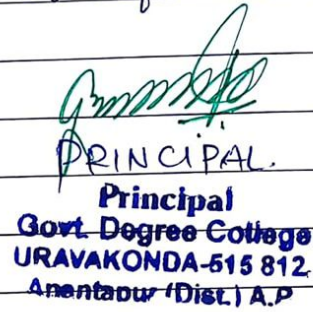 PRINCIPAL.
Principal
Govt. Degree College
URAVAKONDA-515 812.
Anantapur (Dist.) A.P